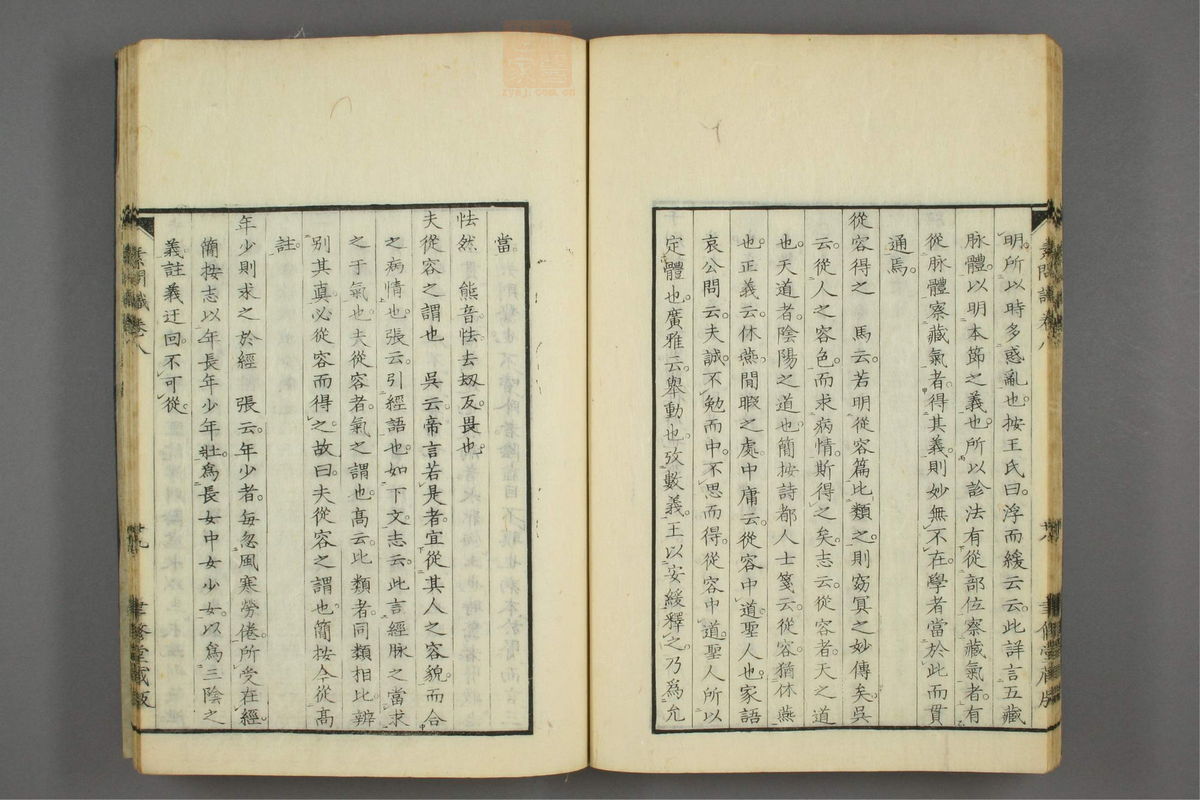 明所以時多惑亂也按王氏曰浮而緩云云此詳言五藏
脉體以明本節之義也所以診法有從部位察藏氣者有
從脉體察藏氣者得其義則妙無不在學者當於此而貫
通焉
從容得之 馬云若明從容篇比類之則窈冥之妙傳矣吳
云從人之容色而求病情斯得之矣志云從容者天之道
也天道者陰陽之道也簡按詩都人士箋云從容猶休燕
也正義云休燕閒暇之處中庸云從容中道聖人也家語
哀公問云夫誠不勉而中不思而得從容中道聖人所以
定體也廣雅云舉動也攷數義王以安緩釋之乃爲允
素問識卷八
當
怯然 熊音怯去刼反畏也
夫從容之謂也 吳云帝言若是者宜從其人之容貌而合
之病情也張云引經語也如下文志云此言經脉之當求
之于氣也夫從容者氣之謂也高云比類者同類相比辨
别其眞必從容而得之故曰夫從容之謂也簡按今從高
註
年少則求之於經 張云年少者每忽風寒勞倦所受在經
簡按志以年長年少年壯爲長女中女少女以爲三陰之
義註義迂回不可從
素問識卷八
廿九
聿修堂藏版